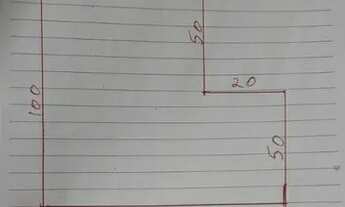 50
20
100
50